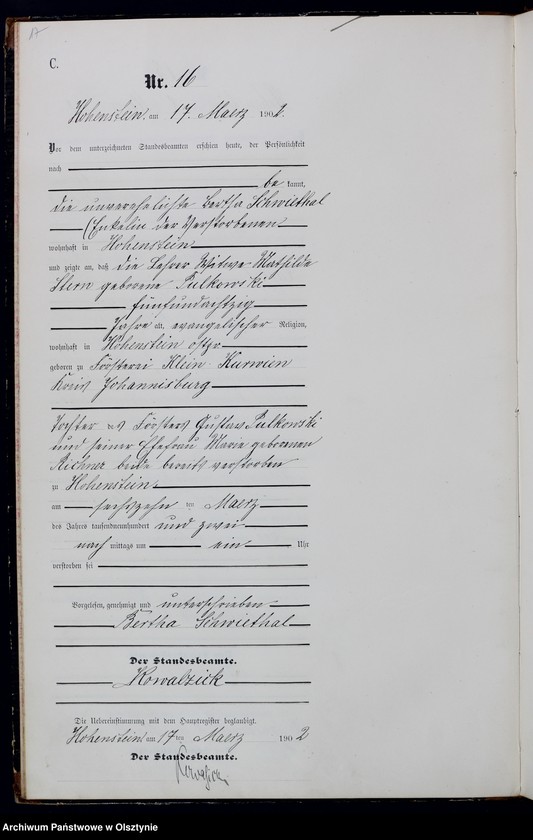 C.
Nr. 16
Hohenstein am 17. Maerz 1902.
Vor dem unterzeichneten Standesbeamten erschien heute, der Persönlichkeit
nach
be kannt,
die unverehelichte Bertha Schwiethal
(Enkelin der Verstorbenen
wohnhaft in Hohenstein
und zeigte an, daß die Lehrer Witwe Mathilde
Stern geborene Pulkowski
fünfundachtzig
Jahre alt, evangelischer Religion,
wohnhaft in Hohenstein Ostpr
geboren zu Försterei Klein Kurwien
Kreis Johannisburg
Tochter des Försters Gustav Pulkowski
und seiner Ehefrau Marie geborenen
beide bereits verstorben
zu Hohenstein
am sechszehn ten Maerz
des Jahres tausendneunhundert und zwei
nach mittags um ein Uhr
verstorben sei
Vorgelesen, genehmigt und unterschrieben
Bertha Schwiethal
Der Standesbeamte.
Kowalzick
Die Uebereinstimmung mit dem Hauptregister beglaubigt.
Hohenstein am 17 ten Maerz 1902
Der Standesbeamte.
Archiwum Państwowe w Olsztynie